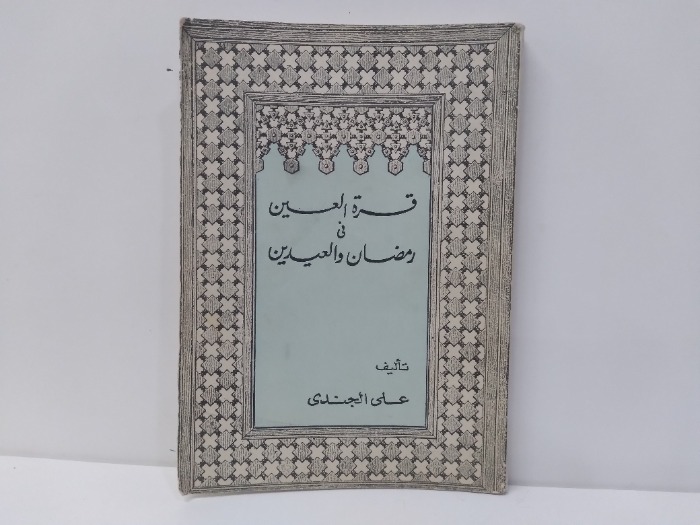 قرة العين
فى
رمضان والعيدين
تأليف
على الجندى